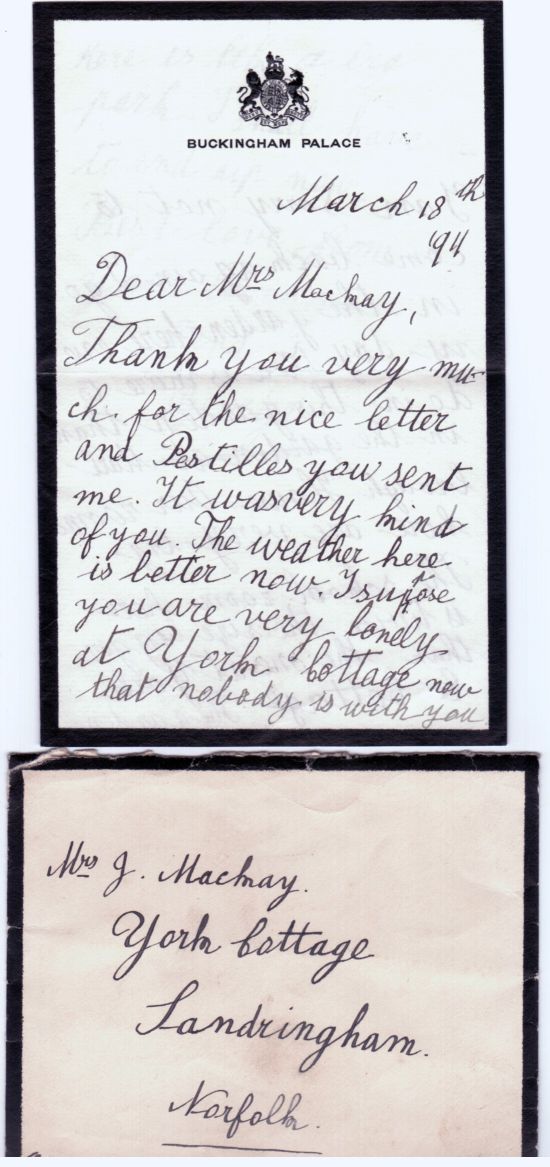 BUCKINGHAM PALACE
March 18th
'94
Dear Mrs Mackay,
Thank you very mu-
ch. for the nice letter
and Pestilles you sent
me. It was very kind
of you. The weather here
is better now. I supose
you are very lonely
at York Cottage now
that nobody is with you
Mrs J. Mackay.
York Cottage
Sandringham.
Norfolk.